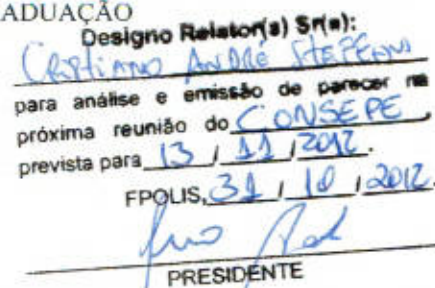 ADUAÇÃO
Designo Relator(a) Sr(a):
CRISTIANO ANDRÉ STEFFENS
para análise e emissão de parecer na
próxima reunião do CONSEPE,
prevista para 13 / 11 / 2012.
FPOLIS, 31 / 10 / 2012.
PRESIDENTE